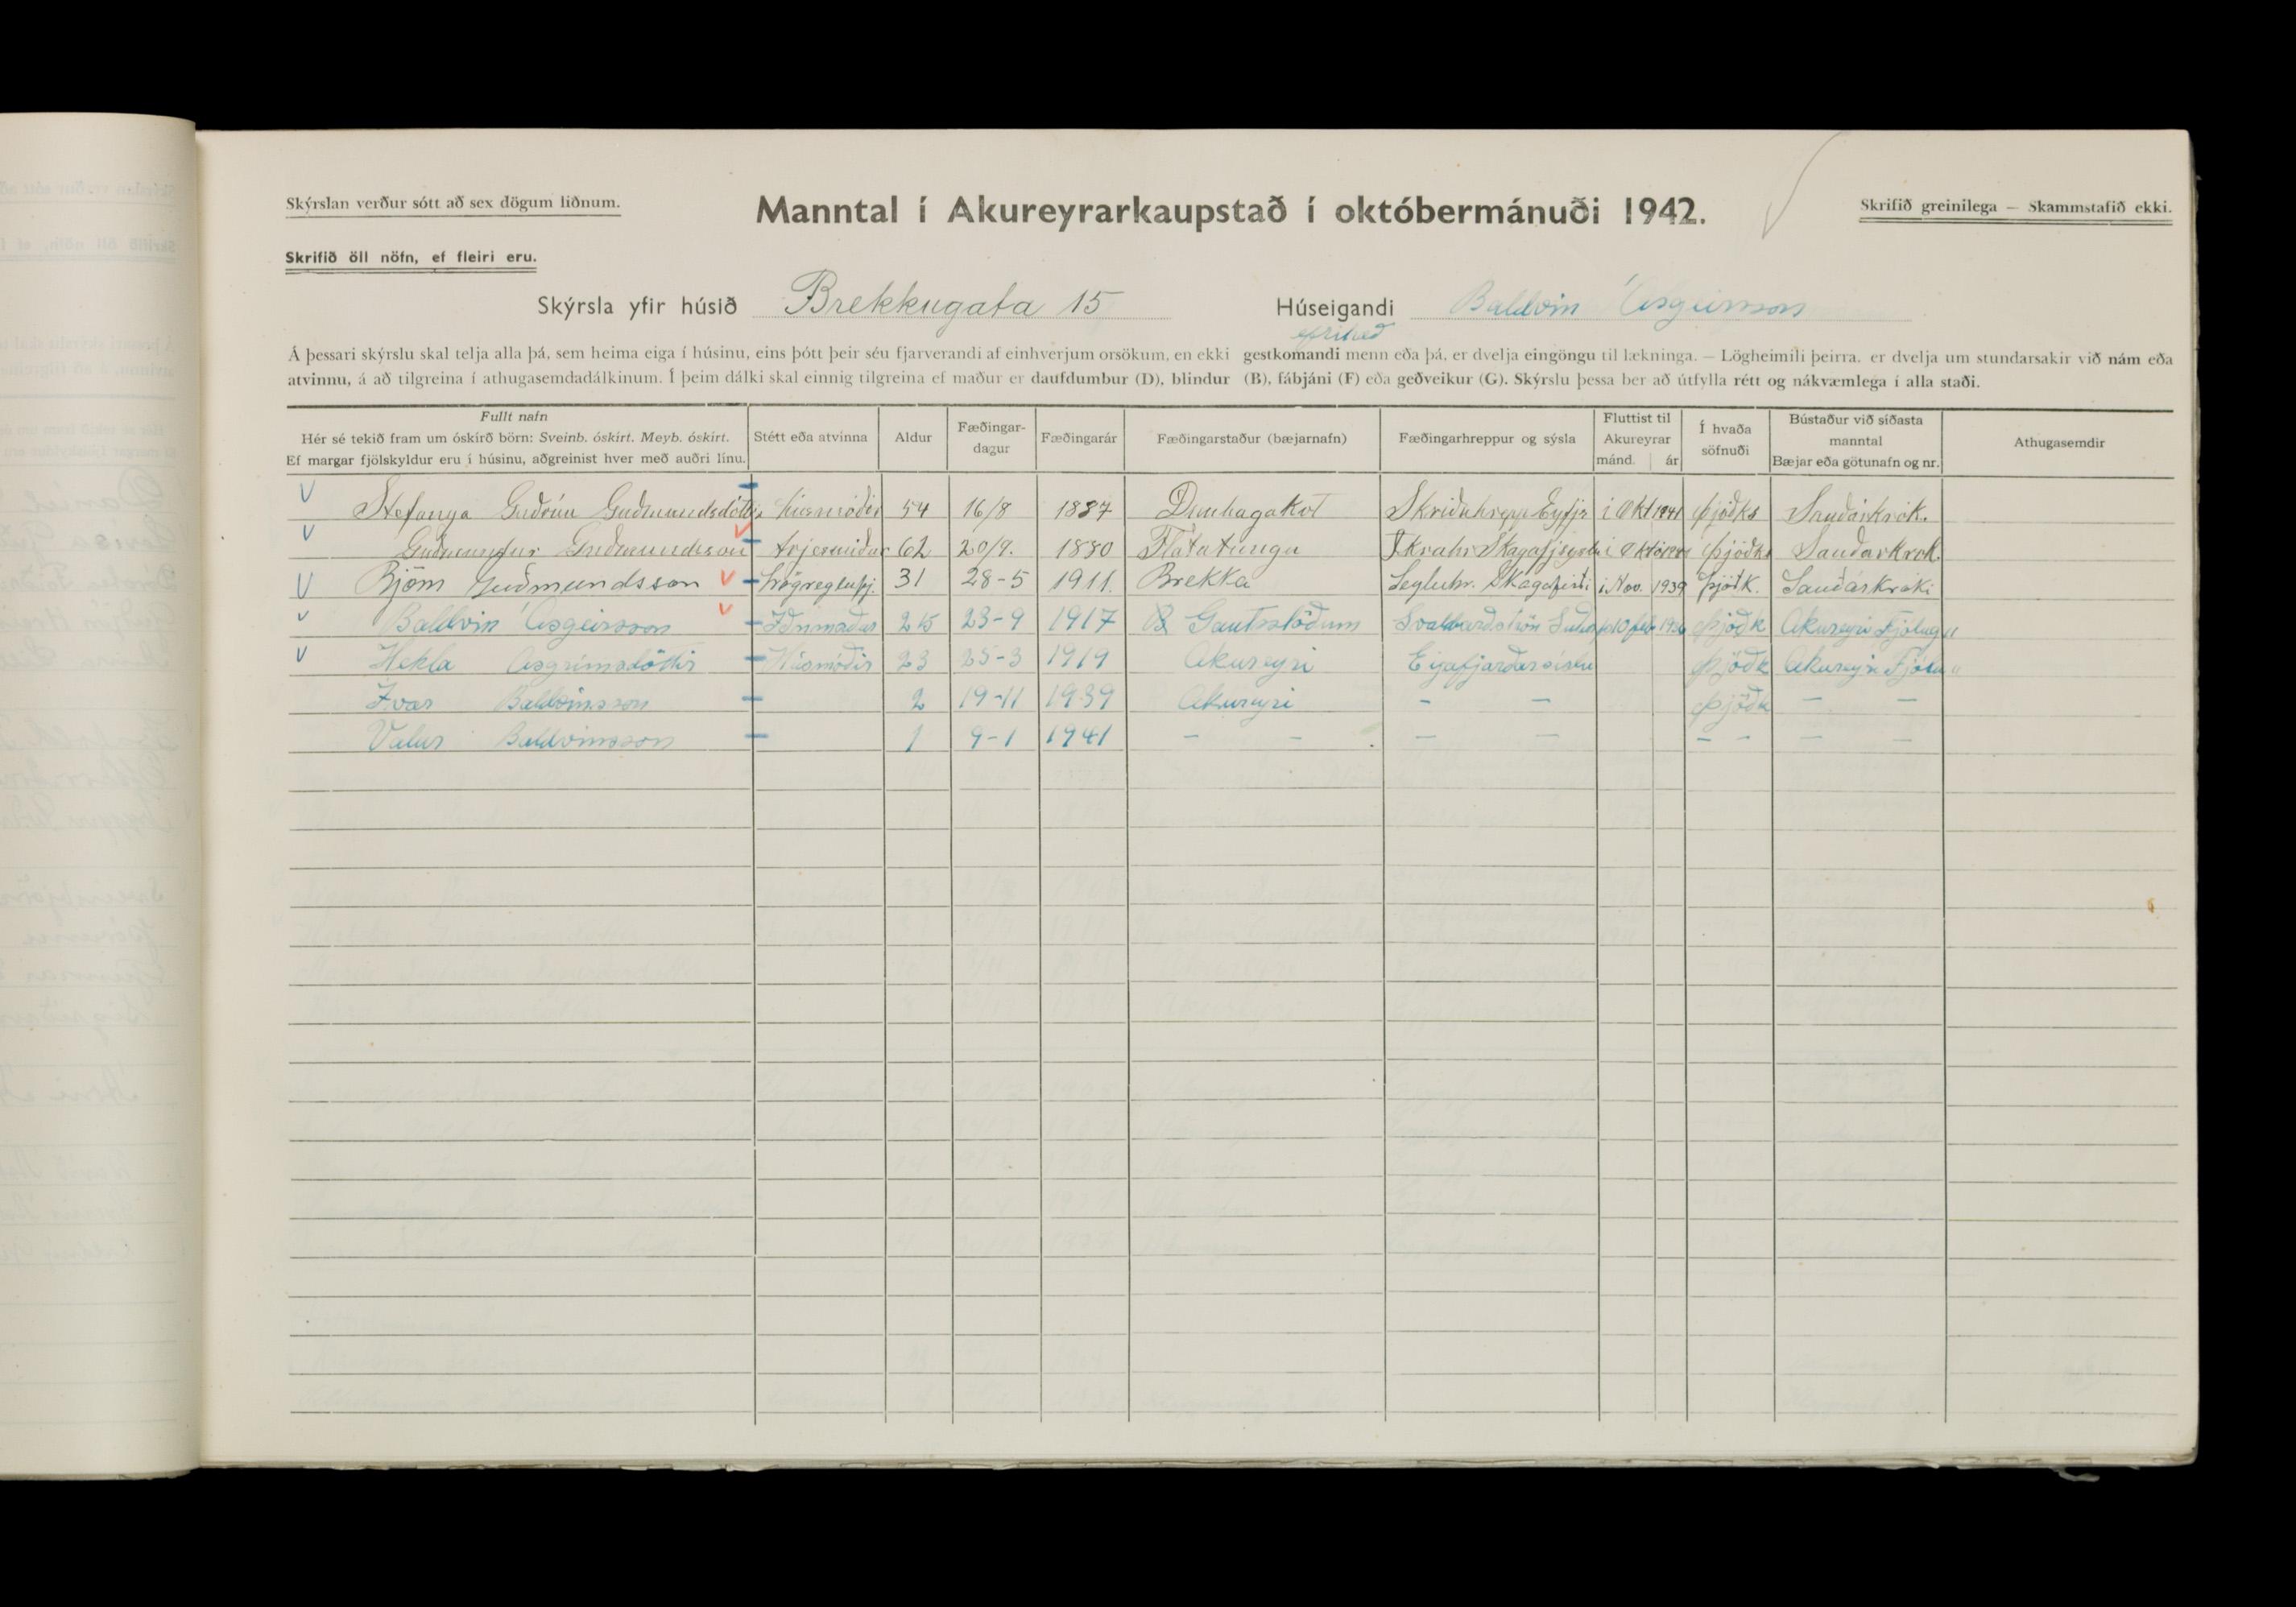 Skýrslan verður sótt að sex dögum liðnum.
Manntal í Akureyrarkaupstað í októbermánuði 1942.
Skrifið greinilega — Skammstafið ekki.
Skrifið öll nöfn, ef fleiri eru.
Skýrsla yfir húsið Brekkugata 15 Húseigandi Baldvin Ásgeirsson
efrihæð
Á þessari skýrslu skal telja alla þá, sem heima eiga í húsinu, eins þótt þeir séu fjarverandi af einhverjum orsökum, en ekki gestkomandi menn eða þá, er dvelja eingöngu til lækninga. — Lögheimili þeirra, er dvelja um stundarsakir við nám eða
atvinnu, á að tilgreina í athugasemdadálkinum. Í þeim dálki skal einnig tilgreina ef maður er daufdumbur (D), blindur (B), fábjáni (F) eða geðveikur (G). Skýrslu þessa ber að útfylla rétt og nákvæmlega í alla staði.
Fullt nafn
Hér sé tekið fram um óskírð börn: Sveinb. óskírt. Meyb. óskírt.
Ef margar fjölskyldur eru í húsinu, aðgreinist hver með auðri línu.
Stétt eða atvinna
Aldur
Fæðingar-
dagur
Fæðingarár
Fæðingarstaður (bæjarnafn)
Fæðingarhreppur og sýsla
Fluttist til
Akureyrar
mánd. ár
Í hvaða
söfnuði
Bústaður við síðasta
manntal
Bæjar eða götunafn og nr.
Athugasemdir
Stefanya Guðrún Guðmundsdóttir húsmóðir 54 16/8 1887 Dunhagakot Skriðuhrepp Eyfjs í Okt 1941 þjóðks Sauðárkrók.
Guðmundur Guðmundsson trjesmiður 62 20/9. 1880 Flatatungu Akrahr Skagafjsyslu í Októ þjóðks Sauðárkrók
Björn Guðmundsson lögregluþj. 31 28-5 1911. Brekka Seyluhr. Skagafirði í Nov. 1939 þjóðk. Sauðárkróki
Baldvin Ásgeirsson Iðnmaður 25 23-9 1917 Gautsstöðum Svalbarðströn 1936 þjóðk Akureyri
Hekla Ásgrímsdóttir Húsmóðir 23 25-3 1919 Akureyri Eyjafjarðarsíslu þjóðk Akureyri
Ívar Baldvinsson 2 19-11 1939 Akureyri — — þjóðk — —
Valur Baldvinsson 1 9-1 1941 — — — — - - — —